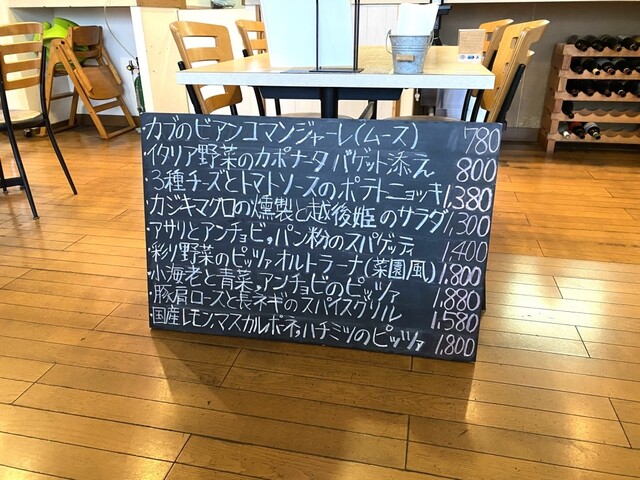 ・カブのビアンコマンジャーレ(ムース) 780
・イタリア野菜のカポナータ バゲット添え 800
・3種チーズとトマトソースのポテトニョッキ 1,380
・カジキマグロの燻製と越後姫のサラダ 1,300
・アサリとアンチョビ,パン粉のスパゲッティ 1,400
・彩り野菜のピッツァ オルトラーナ(菜園風) 1,800
・小海老と青菜,アンチョビのピッツァ 1,880
・豚肩ロースと長ネギのスパイスグリル 1,580
・国産レモン,マスカルポーネ,ハチミツのピッツァ 1,800